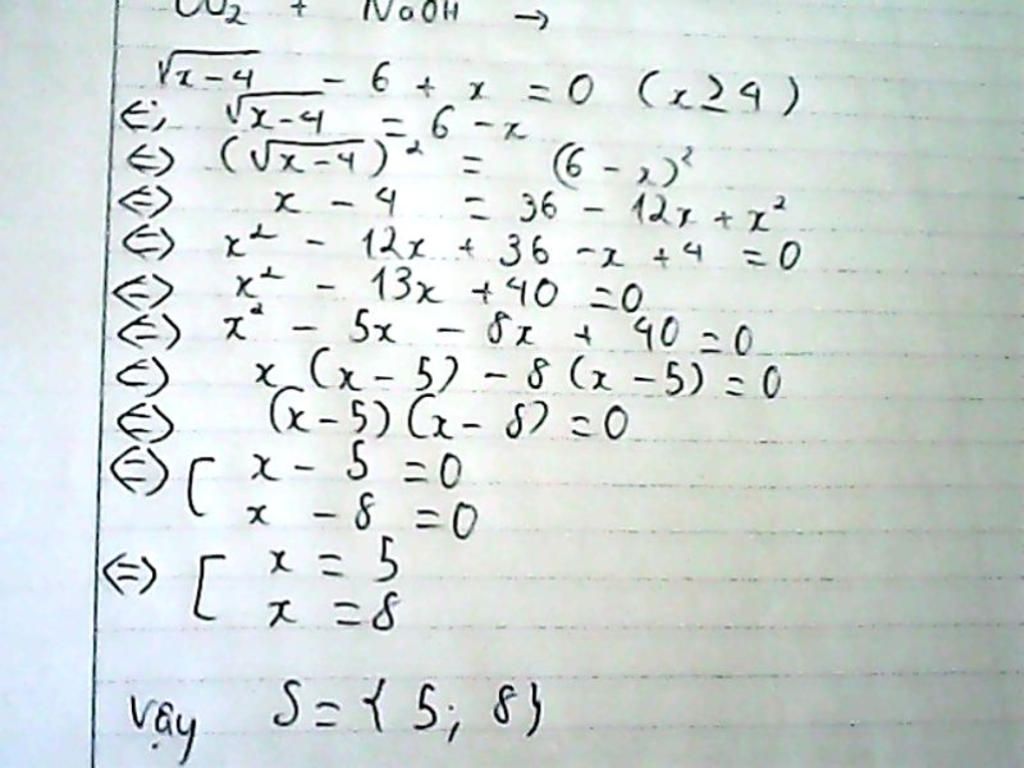 CO₂ + NaOH →
√(x-4) - 6 + x = 0 (x ≥ 4)
⇔ √(x-4) = 6 - x
⇔ (√(x-4))² = (6 - x)²
⇔ x - 4 = 36 - 12x + x²
⇔ x² - 12x + 36 - x + 4 = 0
⇔ x² - 13x + 40 = 0
⇔ x² - 5x - 8x + 40 = 0
⇔ x (x - 5) - 8 (x - 5) = 0
⇔ (x - 5) (x - 8) = 0
⇔ [ x - 5 = 0
x - 8 = 0
⇔ [ x = 5
x = 8
vậy S = { 5; 8}